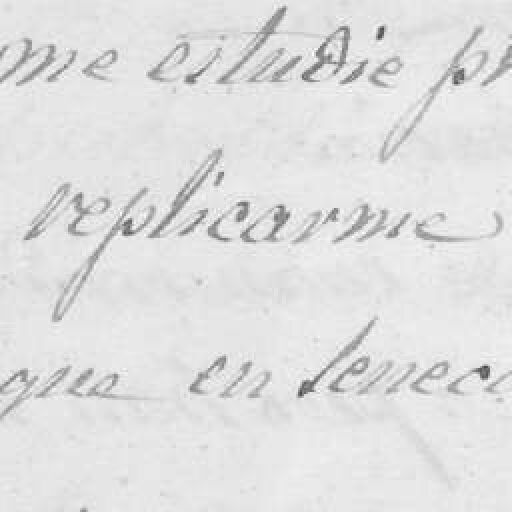 me estudie
replicarme
que en Seneca